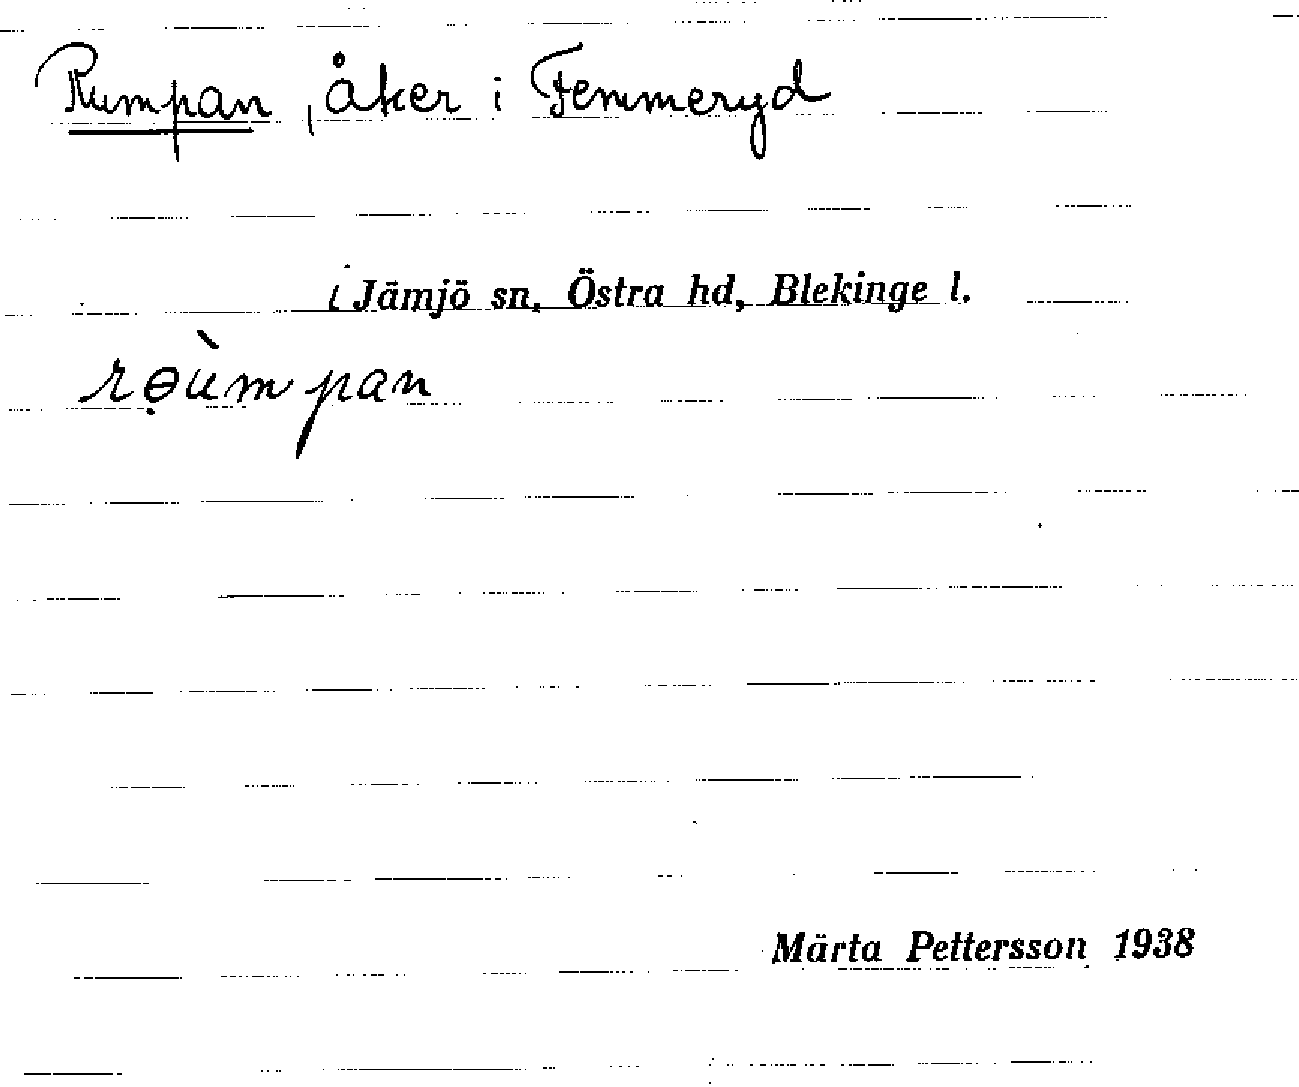 Rumpan, åker i Femmeryd
i Jämjö sn, Östra hd, Blekinge l.
rɵ̣ùmpan
Märta Pettersson 1938